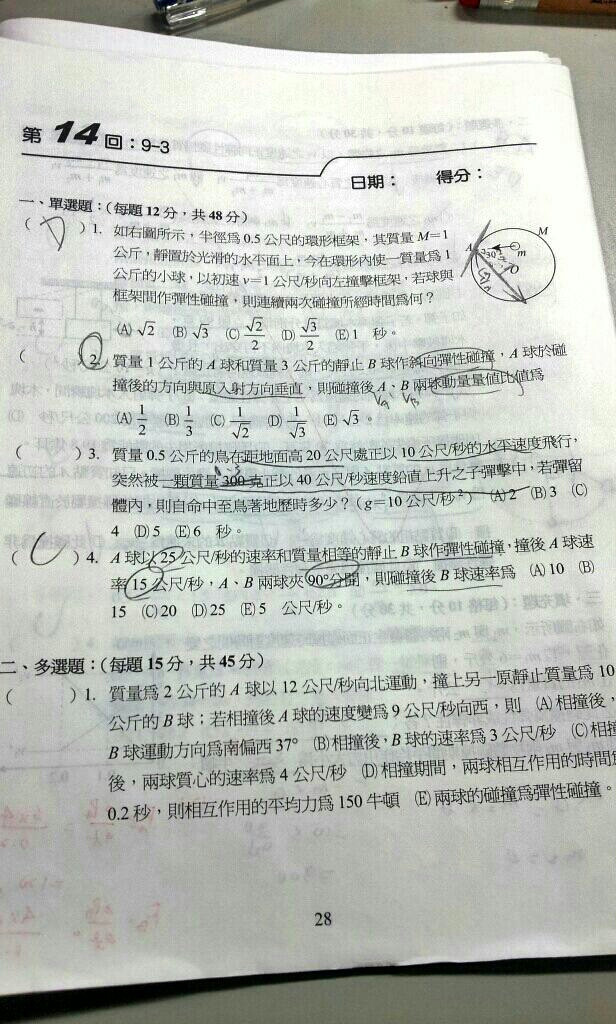 第14回：9-3
日期： 得分：
一、單選題：（每題12分，共48分）
( D ) 1. 如右圖所示，半徑為0.5公尺的環形框架，其質量M＝1
公斤，靜置於光滑的水平面上，今在環形內使一質量為1
公斤的小球，以初速v＝1公尺/秒向左撞擊框架，若球與
框架間作彈性碰撞，則連續兩次碰撞所經時間為何？
(A)√2 (B)√3 (C)√2/2 (D)√3/2 (E)1 秒。
A 30° O m M
( ) 2. 質量1公斤的A球和質量3公斤的靜止B球作斜向彈性碰撞，A球於碰
撞後的方向與原入射方向垂直，則碰撞後A、B兩球動量量值比值為
VA VB
(A)1/2 (B)1/3 (C)1/√2 (D)1/√3 (E)√3。
( ) 3. 質量0.5公斤的鳥在距地面高20公尺處正以10公尺/秒的水平速度飛行，
0.3
突然被一顆質量300克正以40公尺/秒速度鉛直上升之子彈擊中，若彈留
體內，則自命中至鳥著地歷時多少？（g＝10公尺/秒²） (A)2 (B)3 (C)
4 (D)5 (E)6 秒。
( C ) 4. A球以25公尺/秒的速率和質量相等的靜止B球作彈性碰撞，撞後A球速
率15公尺/秒，A、B兩球夾90°分開，則碰撞後B球速率為 (A)10 (B)
15 (C)20 (D)25 (E)5 公尺/秒。
二、多選題：（每題15分，共45分）
( ) 1. 質量為2公斤的A球以12公尺/秒向北運動，撞上另一原靜止質量為10
公斤的B球；若相撞後A球的速度變為9公尺/秒向西，則 (A)相撞後，
B球運動方向為南偏西37° (B)相撞後，B球的速率為3公尺/秒 (C)相撞
後，兩球質心的速率為4公尺/秒 (D)相撞期間，兩球相互作用的時間為
0.2秒，則相互作用的平均力為150牛頓 (E)兩球的碰撞為彈性碰撞。
28